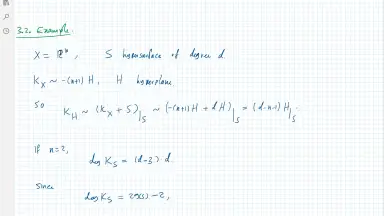 3.2. Example.
X = ℙⁿ, S hypersurface of degree d.
K_X ~ -(n+1)H, H hyperplane.
So K_H ~ (K_X + S)|_S ~ (-(n+1)H + dH)|_S = (d-n-1)H|_S.
If n=2,
deg K_S = (d-3)·d.
Since
deg K_S = 2g(S)-2,